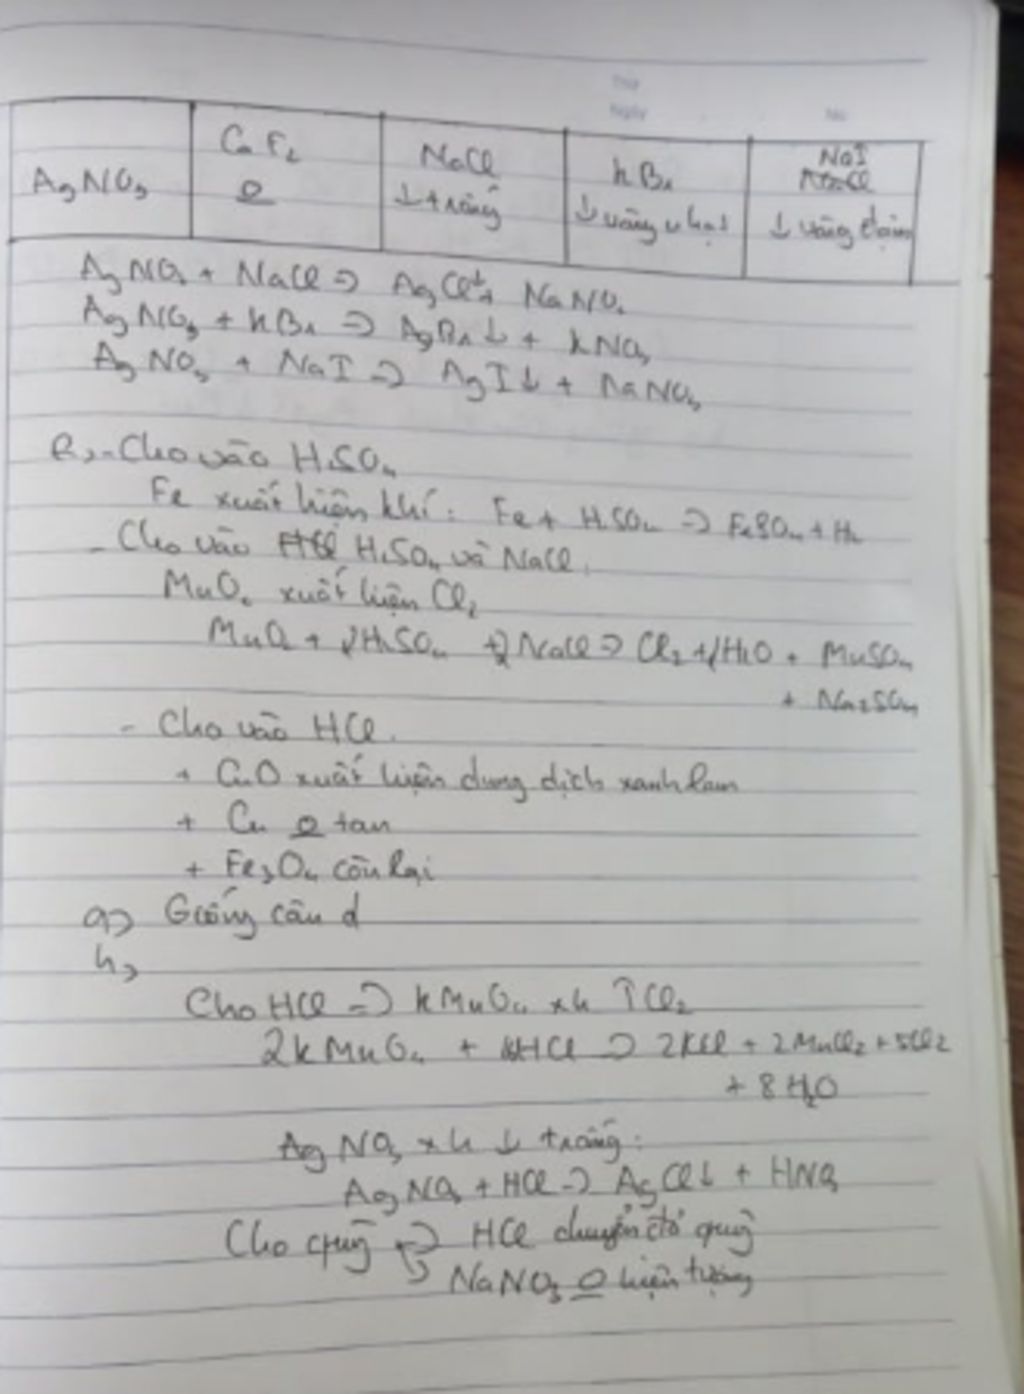 Thứ
Ngày No
AgNO3 CaF2 NaCl KBr NaI
O ↓ trắng ↓ vàng nhạt ↓ vàng đậm
AgNO3 + NaCl => AgCl↓ + NaNO3
AgNO3 + KBr => AgBr↓ + KNO3
AgNO3 + NaI => AgI↓ + NaNO3
- Cho vào H2SO4
Fe xuất hiện khí: Fe + H2SO4 => FeSO4 + H2
- Cho vào H2SO4 và NaCl.
MnO2 xuất hiện Cl2
MnO2 + 2H2SO4 + 2NaCl => Cl2 + 2H2O + MnSO4
+ Na2SO4
- Cho vào HCl.
+ CuO xuất hiện dung dịch xanh lam
+ Cu O tan
+ Fe3O4 còn lại
g> Giống câu d
h>
Cho HCl => KMnO4 xh ↑Cl2
2KMnO4 + HCl => 2KCl + 2MnCl2 + 5Cl2
+ 8H2O
AgNO3 xh ↓ trắng:
AgNO3 + HCl => AgCl↓ + HNO3
Cho quỳ => HCl chuyển đỏ quỳ
NaNO3 O hiện tượng